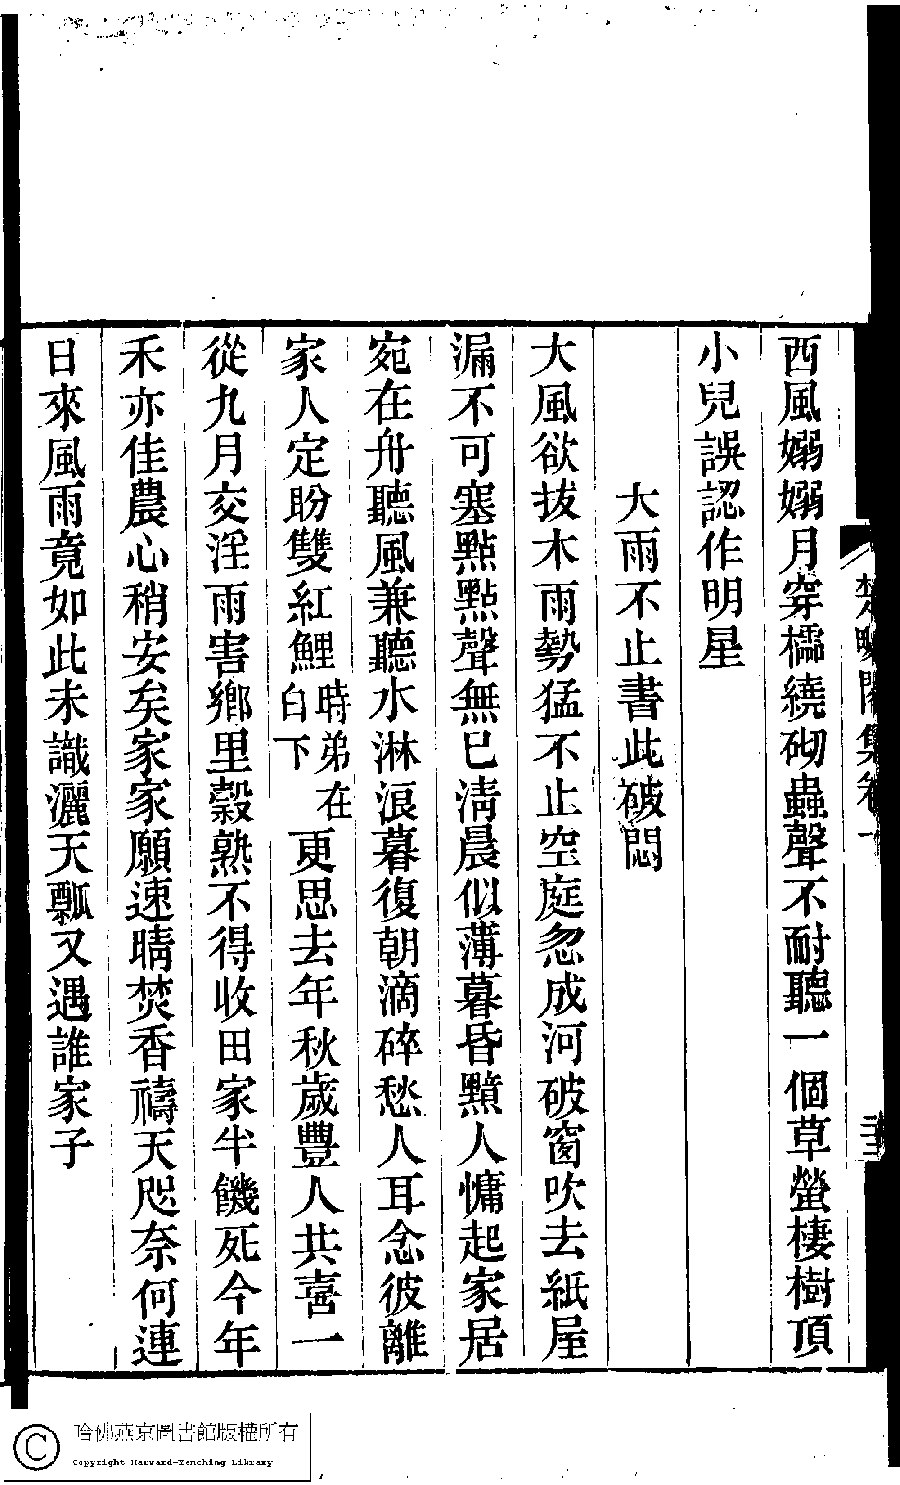 西風嫋嫋月穿櫺繞砌蟲聲不耐聽一個草螢棲樹頂
小兒誤認作明星
大雨不止書此破悶
大風欲拔木雨勢猛不止空庭忽成河破窗吹去紙屋
漏不可塞點點聲無已清晨似薄暮昏黯人慵起家居
宛在舟聽風兼聽水淋浪暮復朝滴碎愁人耳念彼離
家人定盼雙紅鯉時弟在白下更思去年秋歲豐人共喜一
從九月交淫雨害鄉里穀熟不得收田家半饑死今年
禾亦佳農心稍安矣家家願速晴焚香禱天咫奈何連
日來風雨竟如此未識灑天瓢又遇誰家子
集卷一
哈佛燕京圖書館版權所有
Copyright Harvard-Yenching Library